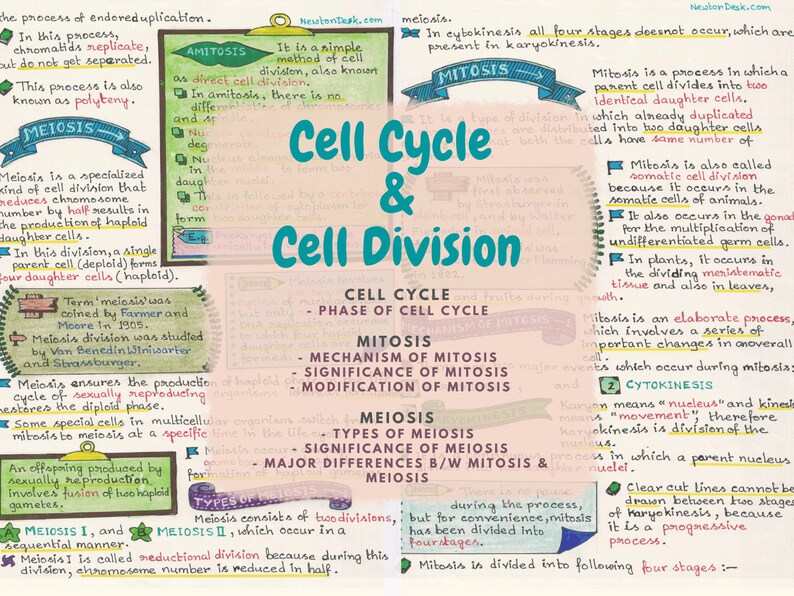 the process of endoreduplication.
In this process,
chromatids replicate,
but do not get separated.
This process is also
known as polyteny.
MEIOSIS
Meiosis is a specialized
kind of cell division that
reduces chromosome
number by half results in
the production of haploid
daughter cells.
In this division, a single
parent cell (deploid) forms
four daughter cells (haploid).
Term 'meiosis' was
coined by Farmer and
Moore in 1905.
Meiosis division was studied
by Van Benedin Winiwarter
and Strassburger.
Meiosis ensures the production
cycle of sexually reproducing
restores the diploid phase.
Some special cells in multicellular organisms switch from
mitosis to meiosis at a specific time in the life cycle
An offspring produced by
sexually reproduction
involves fusion of two haploid
gametes.
NewtonDesk.com
AMITOSIS
It is a simple
method of cell
division, also known
as direct cell division.
In amitosis, there is no
differentiation of chromosomes
and spindle.
Nuclear envelope
degenerate.
Nucleus elongates
in the middle to form two
daughter nuclei.
This is followed by a centripetal
constriction of cytoplasm to
form two daughter cells.
E.g.
Meiosis involves
TYPES OF MEIOSIS
Meiosis consists of two divisions,
MEIOSIS I, and MEIOSIS II, which occur in a
sequential manner.
Meiosis I is called reductional division because during this
division, chromosome number is reduced in half.
Cell Cycle
&
Cell Division
CELL CYCLE
- PHASE OF CELL CYCLE
MITOSIS
- MECHANISM OF MITOSIS
- SIGNIFICANCE OF MITOSIS
- MODIFICATION OF MITOSIS
MEIOSIS
- TYPES OF MEIOSIS
- SIGNIFICANCE OF MEIOSIS
- MAJOR DIFFERENCES B/W MITOSIS &
MEIOSIS
NewtonDesk.com
meiosis.
In cytokinesis all four stages doesnot occur, which are
present in karyokinesis.
MITOSIS
Mitosis is a process in which a
parent cell divides into two
identical daughter cells.
It is a type of division in which already duplicated
are distributed into two daughter cells
that both the cells have same number of
Mitosis was
first observed
by Strasburger in
plant cell, and by Walter
Flemming
in 1882.
Mitosis is also called
somatic cell division
because it occurs in the
somatic cells of animals.
It also occurs in the gonads
for the multiplication of
undifferentiated germ cells.
In plants, it occurs in
the dividing meristematic
tissue and also in leaves,
and fruits during growth.
MECHANISM OF MITOSIS
Mitosis is an elaborate process,
which involves a series of
important changes in overall
cell.
major events which occur during mitosis:
2 CYTOKINESIS
Karyon means "nucleus" and kinesis
means "movement", therefore
karyokinesis is division of the
nucleus.
process in which a parent nucleus
nuclei.
There is no pause
during the process,
but for convenience, mitosis
has been divided into
four stages.
Clear cut lines cannot be
drawn between two stages
of karyokinesis, because
it is a progressive
process.
Mitosis is divided into following four stages :-